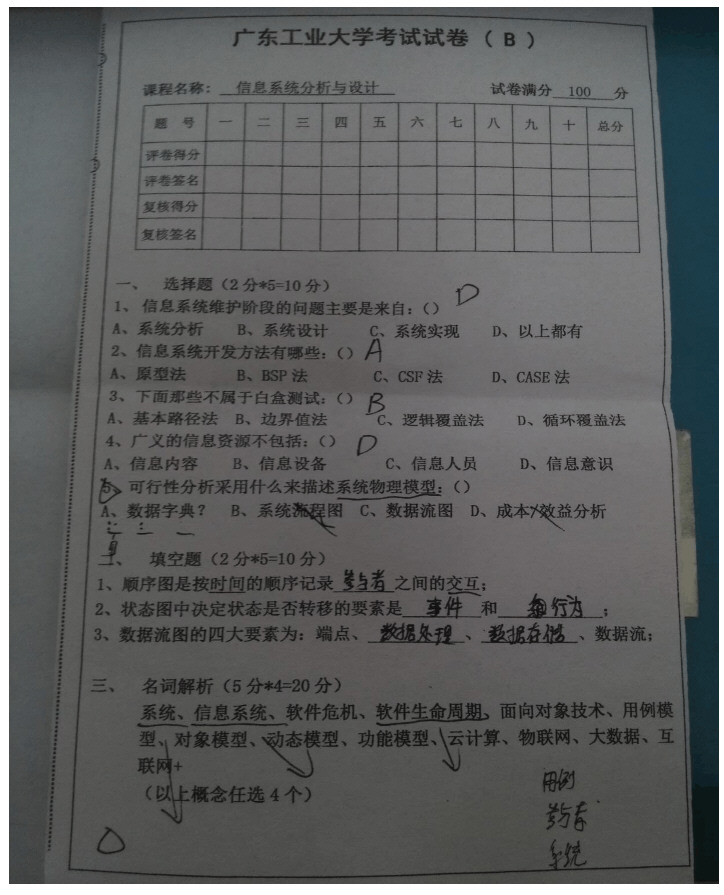 广东工业大学考试试卷 ( B )
课程名称: 信息系统分析与设计 试卷满分 100 分
题 号 一 二 三 四 五 六 七 八 九 十 总分
评卷得分
评卷签名
复核得分
复核签名
一、 选择题(2分*5=10分)
1、 信息系统维护阶段的问题主要是来自:() D
A、系统分析 B、系统设计 C、系统实现 D、以上都有
2、信息系统开发方法有哪些:() A
A、原型法 B、BSP法 C、CSF法 D、CASE法
3、下面那些不属于白盒测试:() B
A、基本路径法 B、边界值法 C、逻辑覆盖法 D、循环覆盖法
4、广义的信息资源不包括:() D
A、信息内容 B、信息设备 C、信息人员 D、信息意识
5、可行性分析采用什么来描述系统物理模型:()
A、数据字典? B、系统流程图 C、数据流图 D、成本/效益分析
二、 填空题(2分*5=10分)
1、顺序图是按时间的顺序记录 参与者 之间的交互;
2、状态图中决定状态是否转移的要素是 事件 和 行为 ;
3、数据流图的四大要素为: 端点、 数据处理 、 数据存储 、数据流;
三、 名词解析(5分*4=20分)
系统、信息系统、软件危机、软件生命周期、面向对象技术、用例模
型、对象模型、动态模型、功能模型、云计算、物联网、大数据、互
联网+
(以上概念任选4个)
用例
参与者
系统